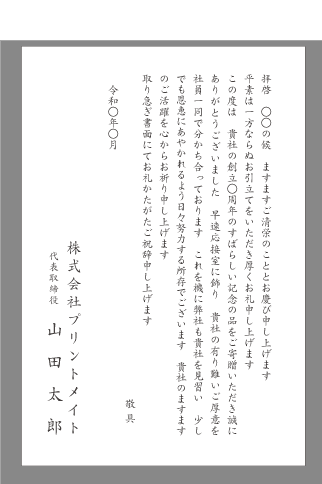 拝啓　〇〇の候　ますますご清栄のこととお慶び申し上げます
平素は一方ならぬお引立てをいただき厚くお礼申し上げます
この度は　貴社の創立〇周年のすばらしい記念の品をご寄贈いただき誠に
ありがとうございました　早速応接室に飾り　貴社の有り難いご厚意を
社員一同で分かち合っております　これを機に弊社も貴社を見習い　少し
でも恩恵にあやかれるよう日々努力する所存でございます　貴社のますます
のご活躍を心からお祈り申し上げます
取り急ぎ書面にてお礼かたがたご祝辞申し上げます
敬具
令和〇年〇月
株式会社プリントメイト
代表取締役　山田太郎